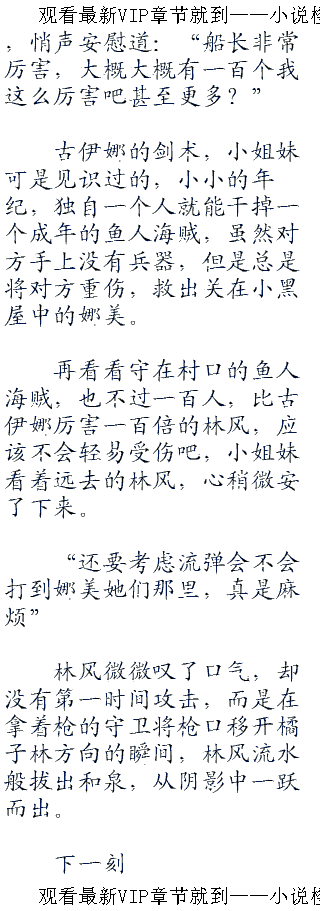 观看最新VIP章节就到——小说检
，悄声安慰道：“船长非常
厉害，大概大概有一百个我
这么厉害吧甚至更多？”
古伊娜的剑术，小姐妹
可是见识过的，小小的年
纪，独自一个人就能干掉一
个成年的鱼人海贼，虽然对
方手上没有兵器，但是总是
将对方重伤，救出关在小黑
屋中的娜美。
再看看守在村口的鱼人
海贼，也不过一百人，比古
伊娜厉害一百倍的林风，应
该不会轻易受伤吧，小姐妹
看着远去的林风，心稍微安
了下来。
“还要考虑流弹会不会
打到娜美她们那里，真是麻
烦”
林风微微叹了口气，却
没有第一时间攻击，而是在
拿着枪的守卫将枪口移开橘
子林方向的瞬间，林风流水
般拔出和泉，从阴影中一跃
而出。
下一刻
观看最新VIP章节就到——小说检